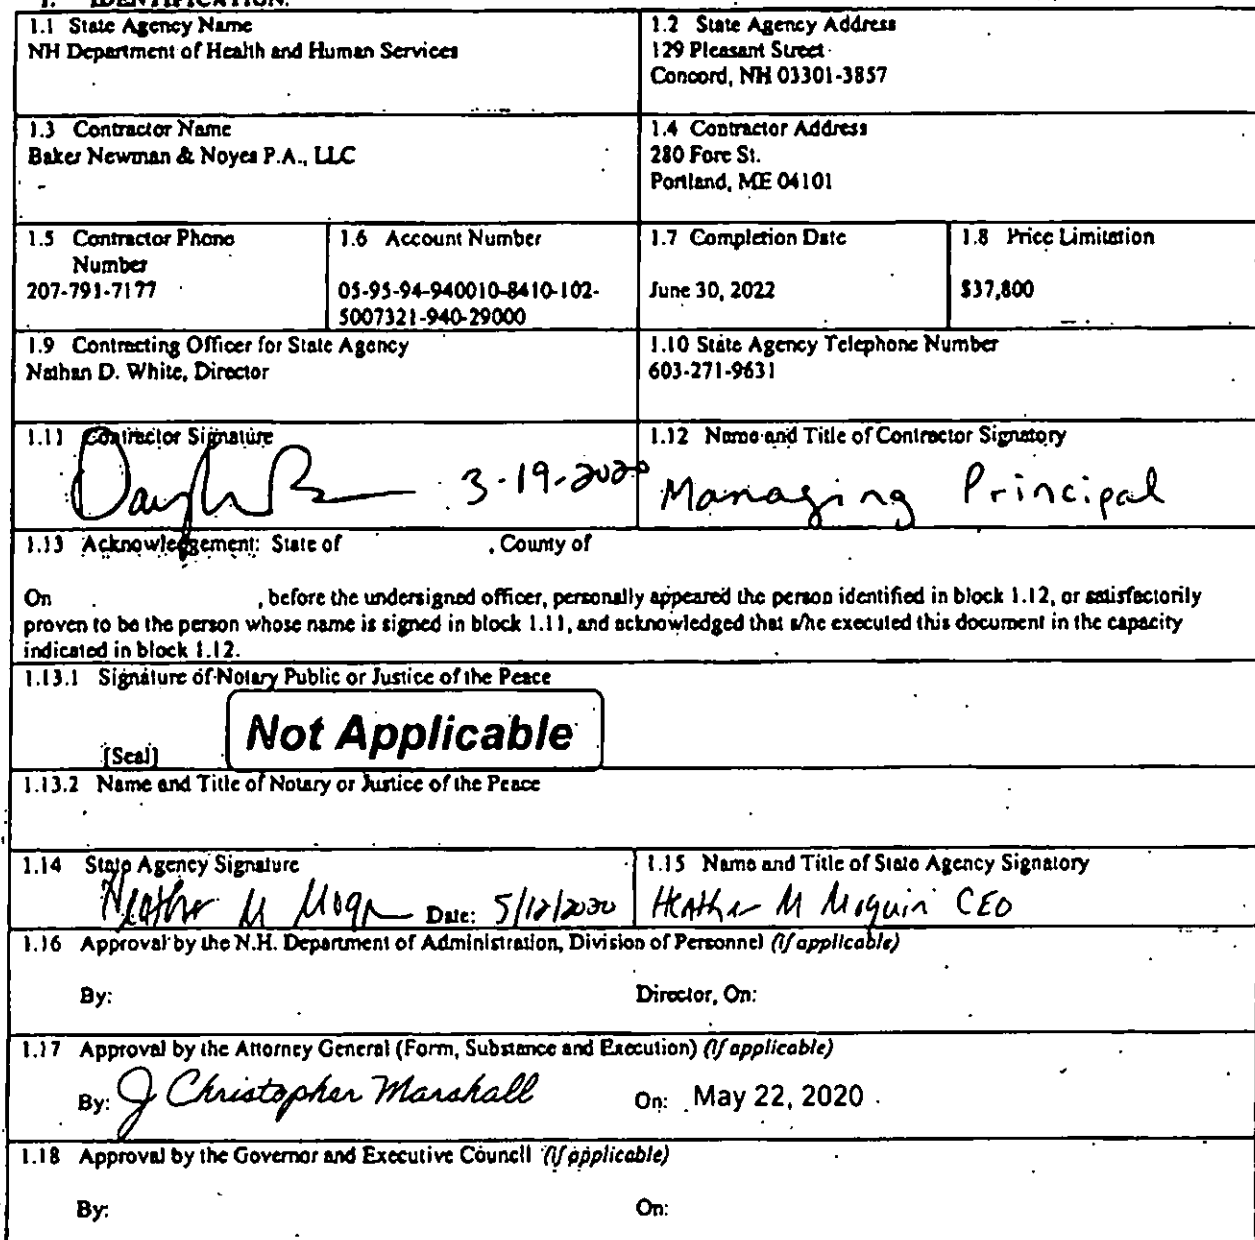 1. IDENTIFICATION.
1.1 State Agency Name
NH Department of Health and Human Services
1.2 State Agency Address
129 Pleasant Street
Concord, NH 03301-3857
1.3 Contractor Name
Baker Newman & Noyes P.A., LLC
1.4 Contractor Address
280 Fore St.
Portland, ME 04101
1.5 Contractor Phone
Number
207-791-7177
1.6 Account Number
05-95-94-940010-8410-102-
5007321-940-29000
1.7 Completion Date
June 30, 2022
1.8 Price Limitation
$37,800
1.9 Contracting Officer for State Agency
Nathan D. White, Director
1.10 State Agency Telephone Number
603-271-9631
1.11 Contractor Signature
3-19-2020
1.12 Name and Title of Contractor Signatory
Managing Principal
1.13 Acknowledgement: State of , County of
On , before the undersigned officer, personally appeared the person identified in block 1.12, or satisfactorily
proven to be the person whose name is signed in block 1.11, and acknowledged that s/he executed this document in the capacity
indicated in block 1.12.
1.13.1 Signature of Notary Public or Justice of the Peace
Not Applicable
[Seal]
1.13.2 Name and Title of Notary or Justice of the Peace
1.14 State Agency Signature
Heather M Date: 5/12/2020
1.15 Name and Title of State Agency Signatory
Heather M Moquin CEO
1.16 Approval by the N.H. Department of Administration, Division of Personnel (if applicable)
By: Director, On:
1.17 Approval by the Attorney General (Form, Substance and Execution) (if applicable)
By: J Christopher Marshall On: May 22, 2020
1.18 Approval by the Governor and Executive Council (if applicable)
By: On: